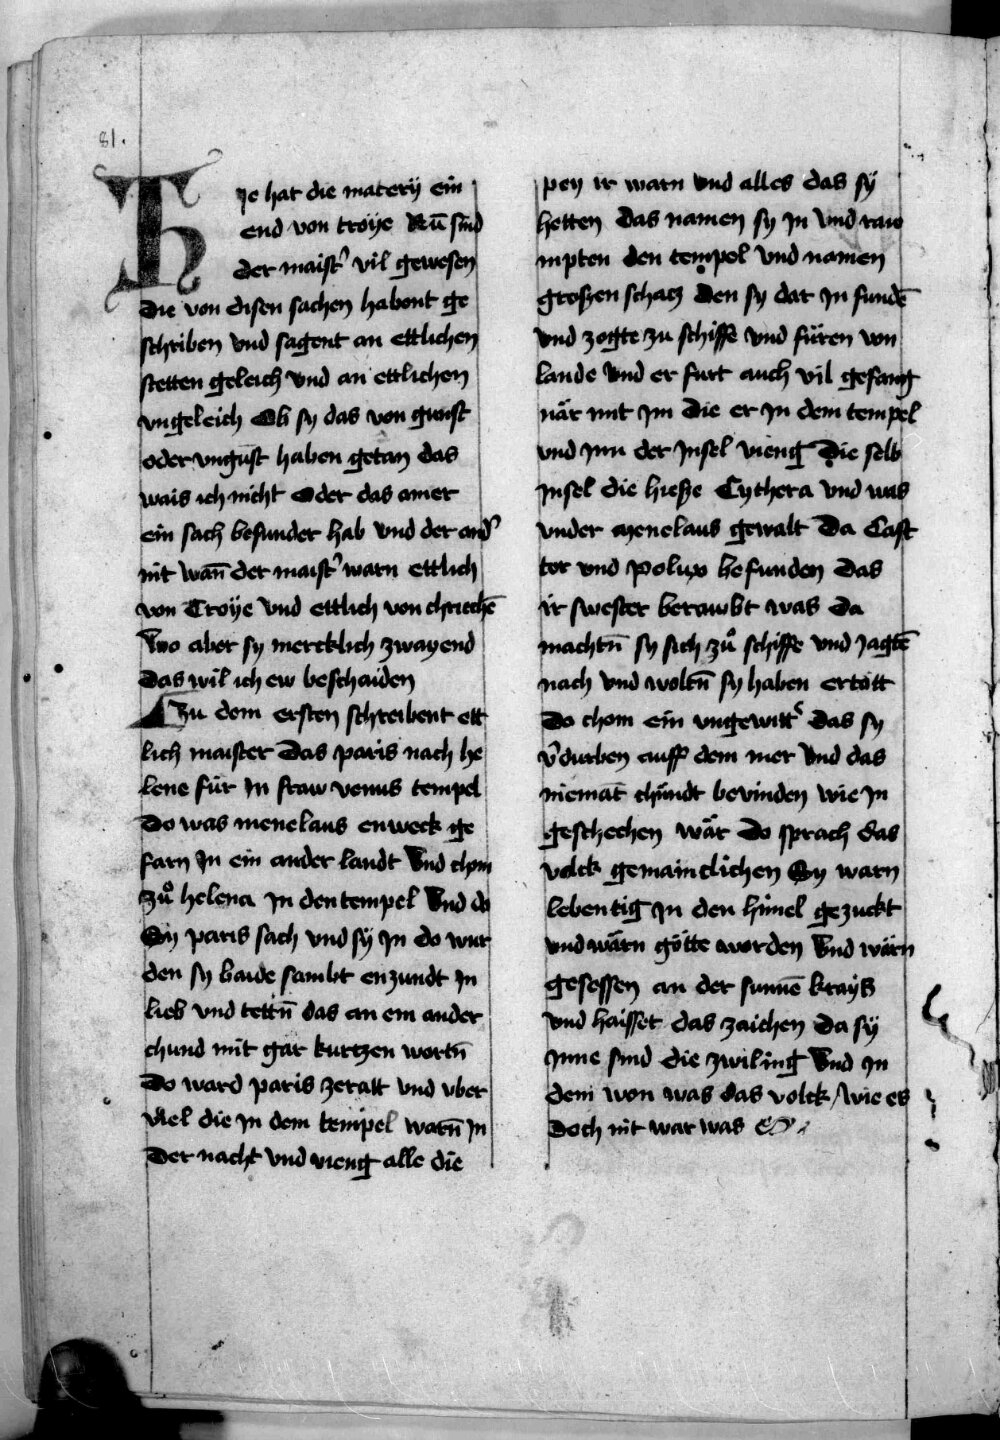 81.
Hie hat die materÿ ein
end von troÿe Nu̅ sind
der maist' vil gewesen
die von disen sachen habent ge
schriben vnd sagent an ettlichen
stetten geleich vnd an ettlichen
vngeleich Ob sy das von gunst
oder vngunst haben getan das
wais ich nicht Oder das ainer
ein sach besunder hab vnd der and'
nit wan̅ der maist' warn ettlich
von Troÿe vnd ettlich von chrieche̅
Wo aber sy mercklich zwayend
das wil ich ew beschaiden
Zu dem ersten schreibent ett
lich maister Das paris nach he
lene für In fraw venus tempel
Do was menelaus enweck ge
farn In ein ander landt Vnd chom
zů helena In den tempel Vnd do
Sy paris sach vnd sÿ In do wur
den sy baide sambt enzundt In
lieb vnd tettn̅ das an ein ander
chund mit gar kurtzen wortn̅
Do ward paris zeratt vnd vber
viel die In dem tempel warn̅ In
Der nacht vnd vieng alle die
pey ir warn vnd alles das sÿ
hetten das namen sy In vnd raw
mpten den tempel Vnd namen
grossen schacz Den sy dar In funde̅
vnd zogte zu schiffe vnd füren von
lande Vnd er furt auch vil gefang
när mit Im Die er In dem tempel
vnd Inn der Insel vieng Die selb
Insel die hiesse Cythera vnd was
vnder menelaus gewalt Da Cast
tor vnd polux befunden das
Ir swester berawbt was da
machtn̅ sy sich zů schiffe vnd Jagte̅
nach vnd woltn̅ sy haben ertött
Do chom ein vngewitt' das sy
v'durben auff dem mer Vnd das
niemat chündt bevinden wie In
geschechen wär Do sprach das
volck gemainclichen Sy warn
lebentig In den himel gezuckt
vnd wärn götte worden Vnd wärn
gesessen an der sunne̅ krayß
vnd haisset das zaichen Da sÿ
Inne sind die zwiling Vnd In
dem won was das volck / wie es
doch nit war was